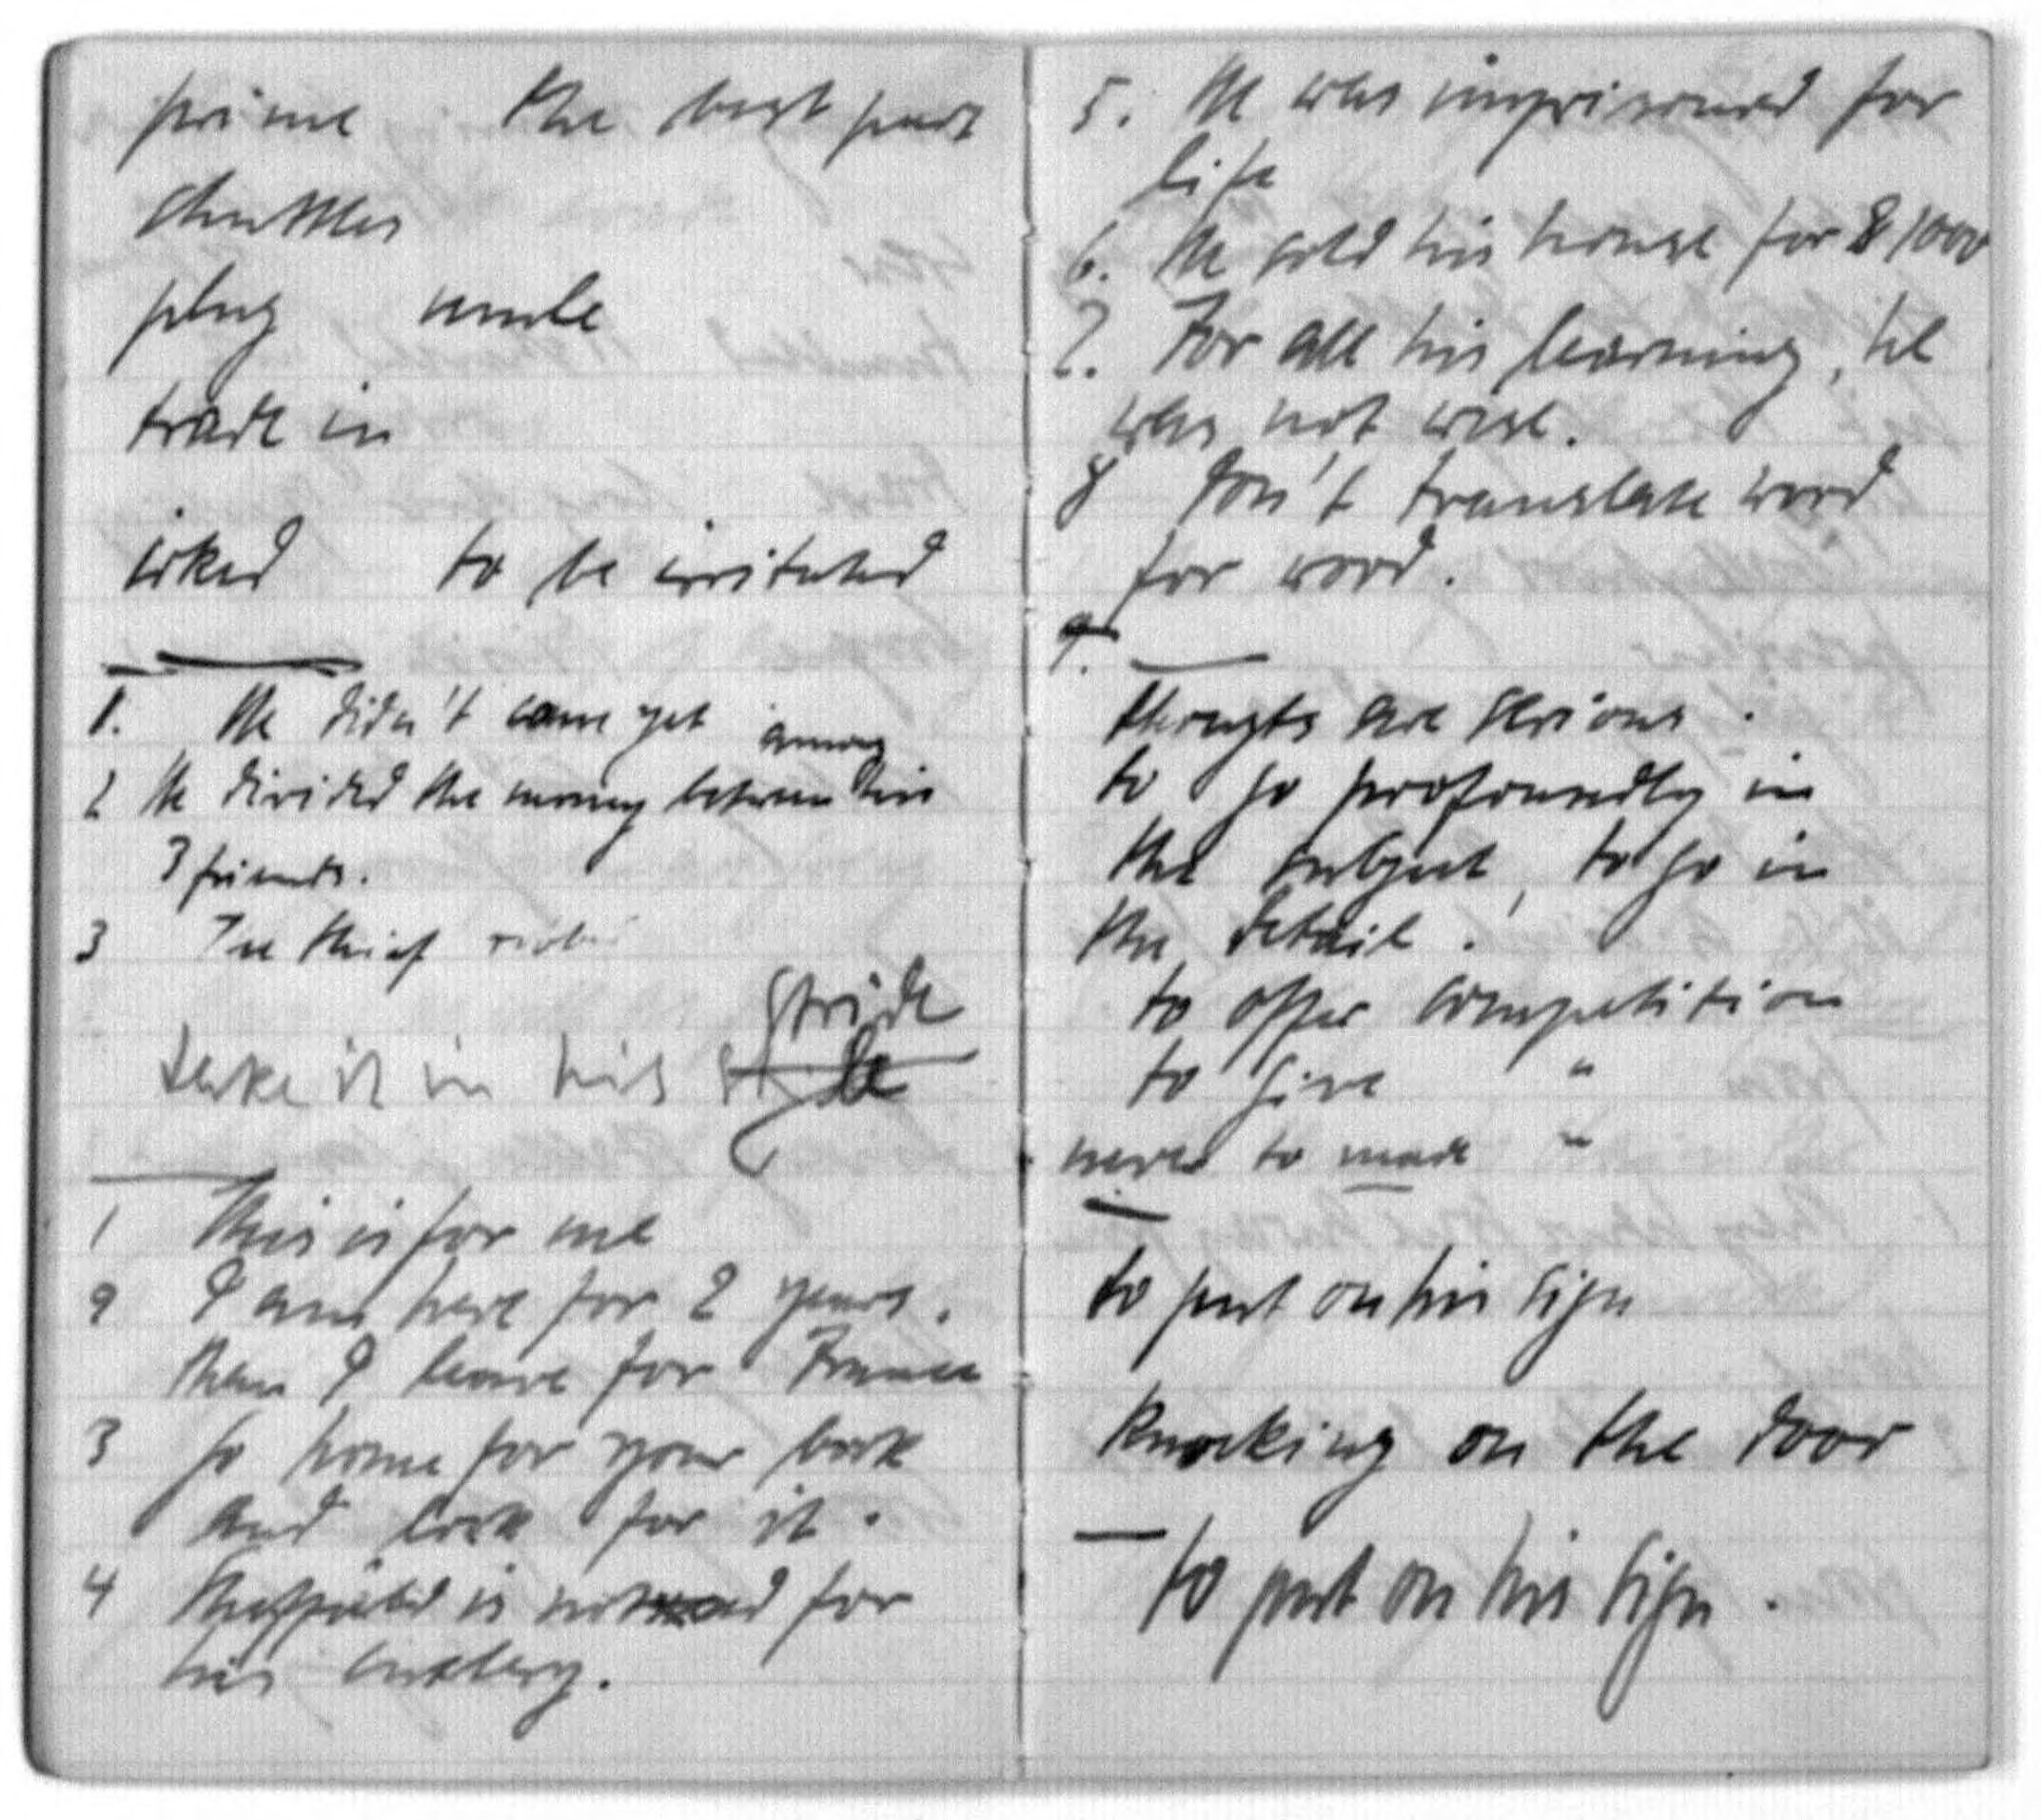 prime the best part
chattles
plug mule
trade in
irked to be irritated
1. He didn't came yet
among
2 He divided the money between his
3 friends.
3 The thief
stride
take it in his
1 This is for me
2 I am here for 2 years.
then I leave for France
3 go home for your book
and look for it.
4 Sheffield is noted for
his cutlery.
5. He was imprisoned for
life
6. He sold his house for $ 1000
7. For all his learning, he
was not wise.
8 Don't translate word
for word.
9.
thougts are serious.
to go profoundly in
the subject, to go in
the detail.
to offer competition
to give "
never to made "
to put on his sign
knocking on the door
to put on his sign.